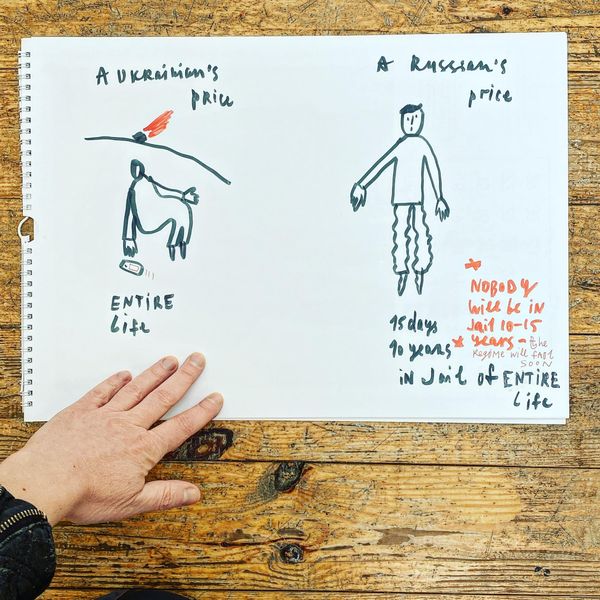 A UKRAINIAN's
PRICE
ENTIRE
life
A RUSSIAN's
price
15 days
10 years *
in Jail of ENTIRE
life
* NOBODY
will be in
Jail 10-15
years - the
REGIME will FALL
SOON